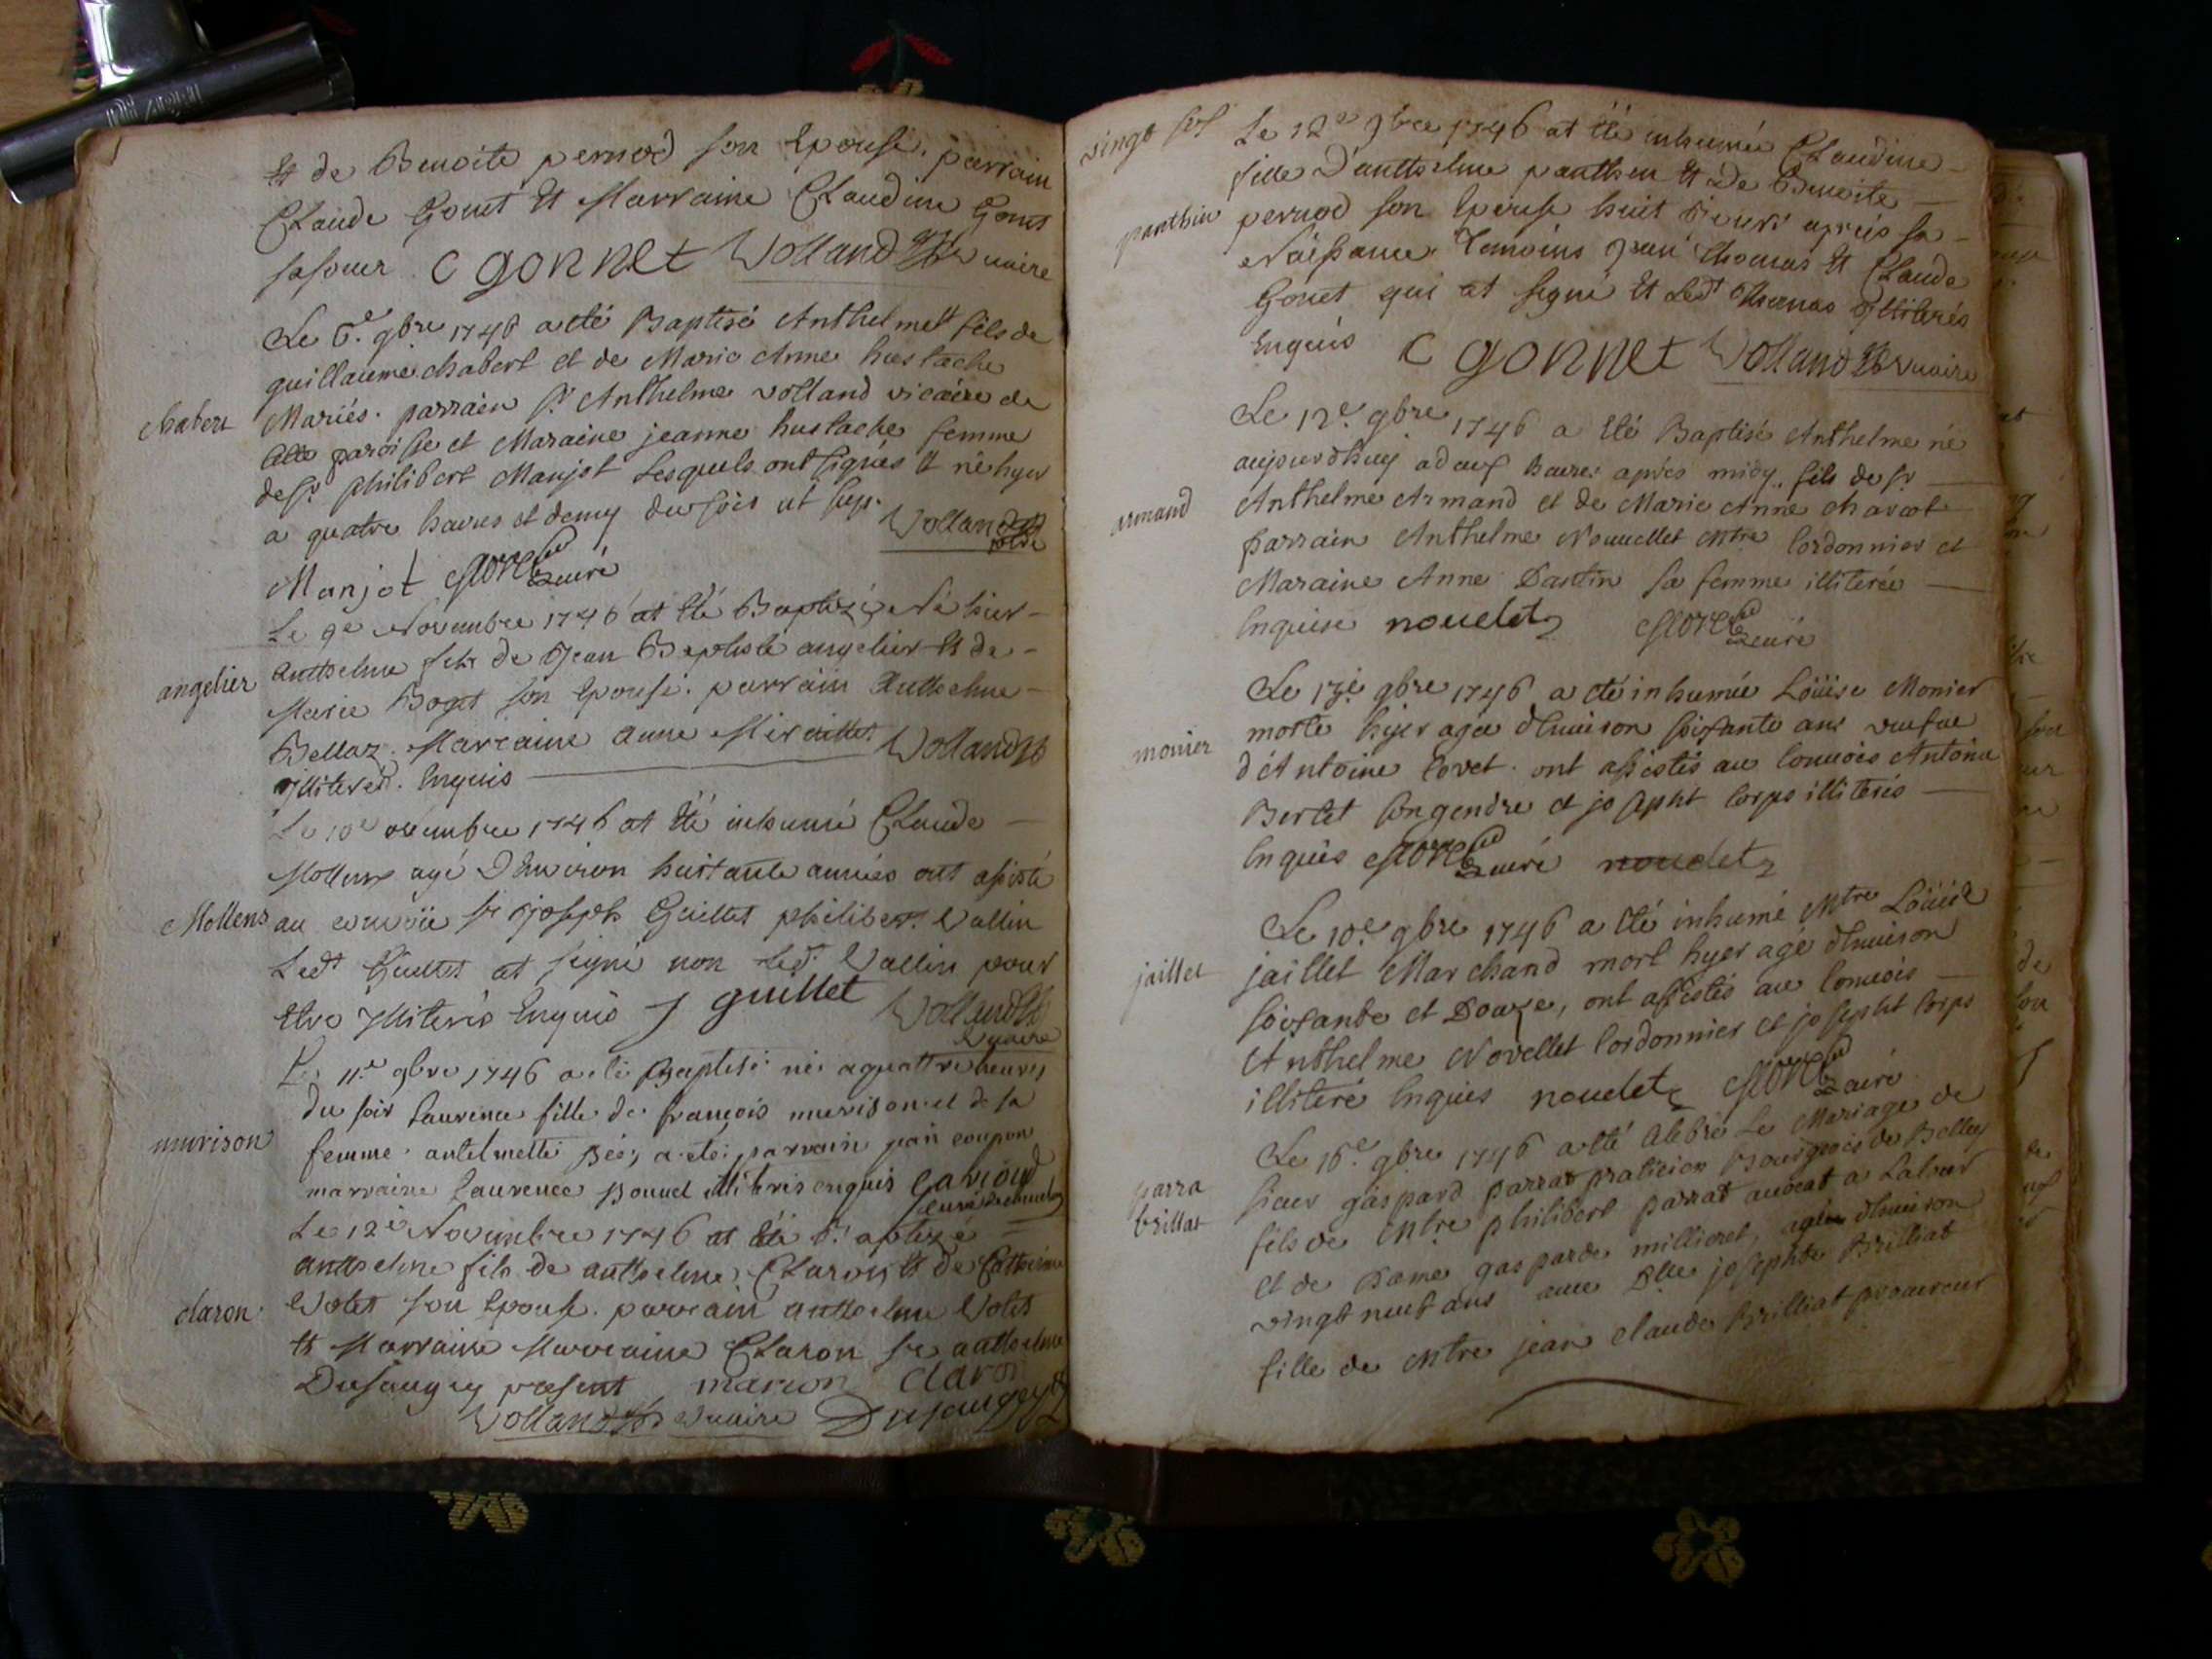 et de Benoite pernod son Epouse. parrain
Claude Gonet et Marraine Claudine Gonet
sa soeur C gonnet Volland ptre vicaire
chabert
Le 6.e 9bre 1746 a eté Baptisé Anthelmett fils de
guillaume chabert et de Marie Anne hustache
Mariés. parrain Sr Anthelme volland vicaire de
paroisse et Maraine jeanne hustache femme
de Sr philibert Manjot Lesquels ont signés et né hyer
a quatre heures et demy du soir ut sup. Volland ptre
Manjot curé
angelier
Le 9e Novembre 1746 at été Baptizé Né hier
anthelme fils de Jean Baptiste angelier et de
Marie Boget son Epouse. parrain Anthelme
Bellaz. Marraine anne Volland ptre
illiterés. Enquis
Mollens
Le 10e novembre 1746 at été inhumé Claude
Mollens agé D'Environ huitante années ont assisté
au convoi Sr joseph Guillet philibert Vallin
Ledt Guillet at signé non Ledt Vallin pour
etre illiterés Enquis J guillet Volland ptre
vicaire
murison
Le 11.e 9bre 1746 a eté Baptisé née a quattre heures
du soir laurence fille de françois murison et de sa
femme antelmette a eté parrain jean coupon
marraine laurence bonnet illiteris enquis
curé
claron
Le 12e Novembre 1746 at été Baptizé
anthelme fils de anthelme Claron et de Catherine
Volet son Epouse. parrain anthelme Volet
et Marraine Marraine Claron sr anthelme
Dujaugey present marion claron
Volland ptre vicaire Dujaugey
vingt sept
panthin
Le 12e 9bre 1746 at été inhumée Claudine
fille D'anthelme panthin et De Benoite
pernod son Epouse huit jours aprés sa
Naissance. Temoins jean Thomas et Claude
Gonet qui at signé et Ledt Thomas illiterés
Enquis C gonnet Volland ptre vicaire
armand
Le 12.e 9bre 1746 a été Baptisé Anthelme né
aujourdhuy a deux heures aprés midy, fils de Sr
Anthelme Armand et de Marie Anne charcot
parrain Anthelme Nouuellet Mtre Cordonnier et
Maraine Anne Dantin sa femme illiterée
Enquise nouelet curé
monier
Le 17.e 9bre 1746 a eté inhumée Loüise Monier
morte hyer agée d'Enuiron soixante ans veufue
d'Antoine Covet. ont assistés au Conuois Antoine
Bertet son gendre et josepht Corps illiterés
Enquis curé nouelet
jaillet
Le 10.e 9bre 1746 a été inhumé Mtre Loüis
jaillet Marchand mort hyer agé d'Enuiron
soixante et Douze, ont assistés au Conuois
Anthelme Novellet Cordonnier et josepht Corps
illiteré Enquis nouelet curé
parra
brillat
Le 16.e 9bre 1746 a été Célébré Le Mariage de
Sieur gaspard parrat praticien Bourgeois de Belley
fils de Mtre philibert parrat auocat a Lacour
et de Dame gasparde millieret, agée d'Enuiron
vingt neuf ans auec Dlle josephte Brilliat
fille de Mtre jean claude Brilliat procureur